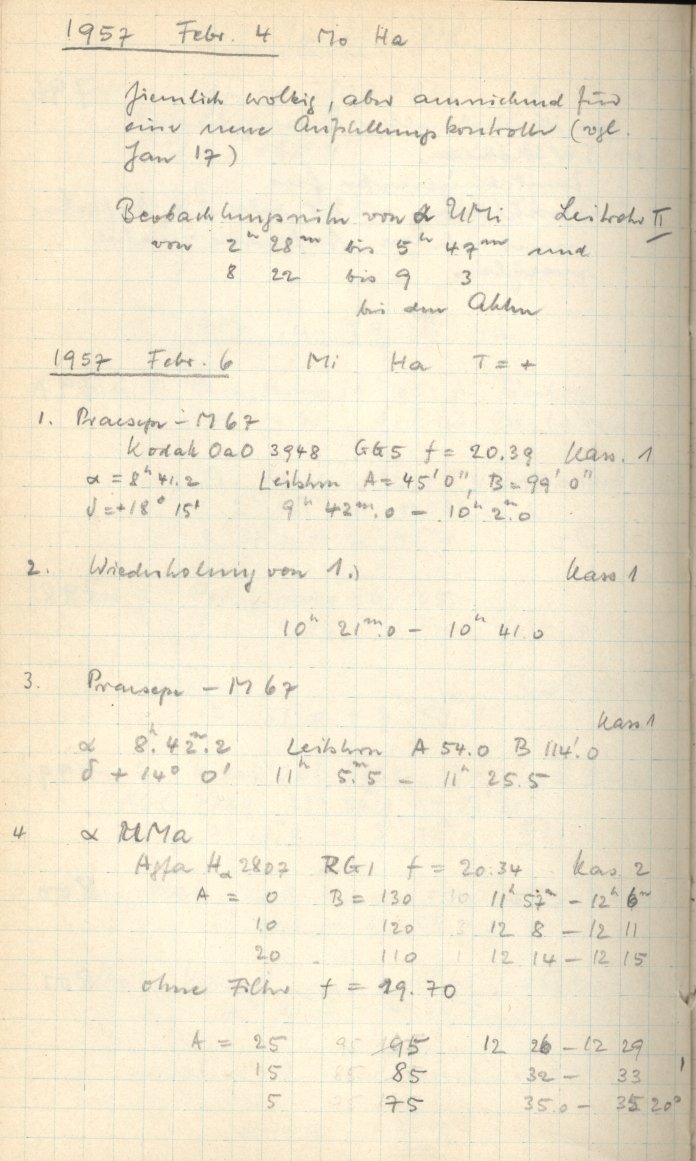 1957 Febr. 4 Mo Ha
Ziemlich wolkig, aber ausreichend für
eine neue Aufstellungskontrolle (vgl.
Jan 17)
Beobachtungsreihe von α UMi Leitrohr II
von 2h 28m bis 5h 47m und
8 22 bis 9 3
bei den Akten
1957 Febr. 6 Mi Ha T = +
1. Praesepe - M 67
Kodak OaO 3948 GG5 f = 20.39 Kass. 1
α = 8h 41.2 Leitstern A = 45' 0", B = 99' 0"
δ = +18° 15' 9h 42m.0 - 10h 2m.0
2. Wiederholung von 1.) Kass 1
10h 21m.0 - 10h 41.0
3. Praesepe - M 67
Kass 1
α 8h. 42m.2 Leitstern A 54.0 B 114'.0
δ + 14° 0' 11h 5m.5 - 11h 25.5
4 α UMa
Agfa Hα 2807 RG1 f = 20.34 Kas. 2
A = 0 B = 130 11h 57m - 12h 6m
10 120 12 8 - 12 11
20 110 12 14 - 12 15
ohne Filter f = 19.70
A = 25 95 12 26 - 12 29
15 85 32 - 33
5 75 35.0 - 35 20s